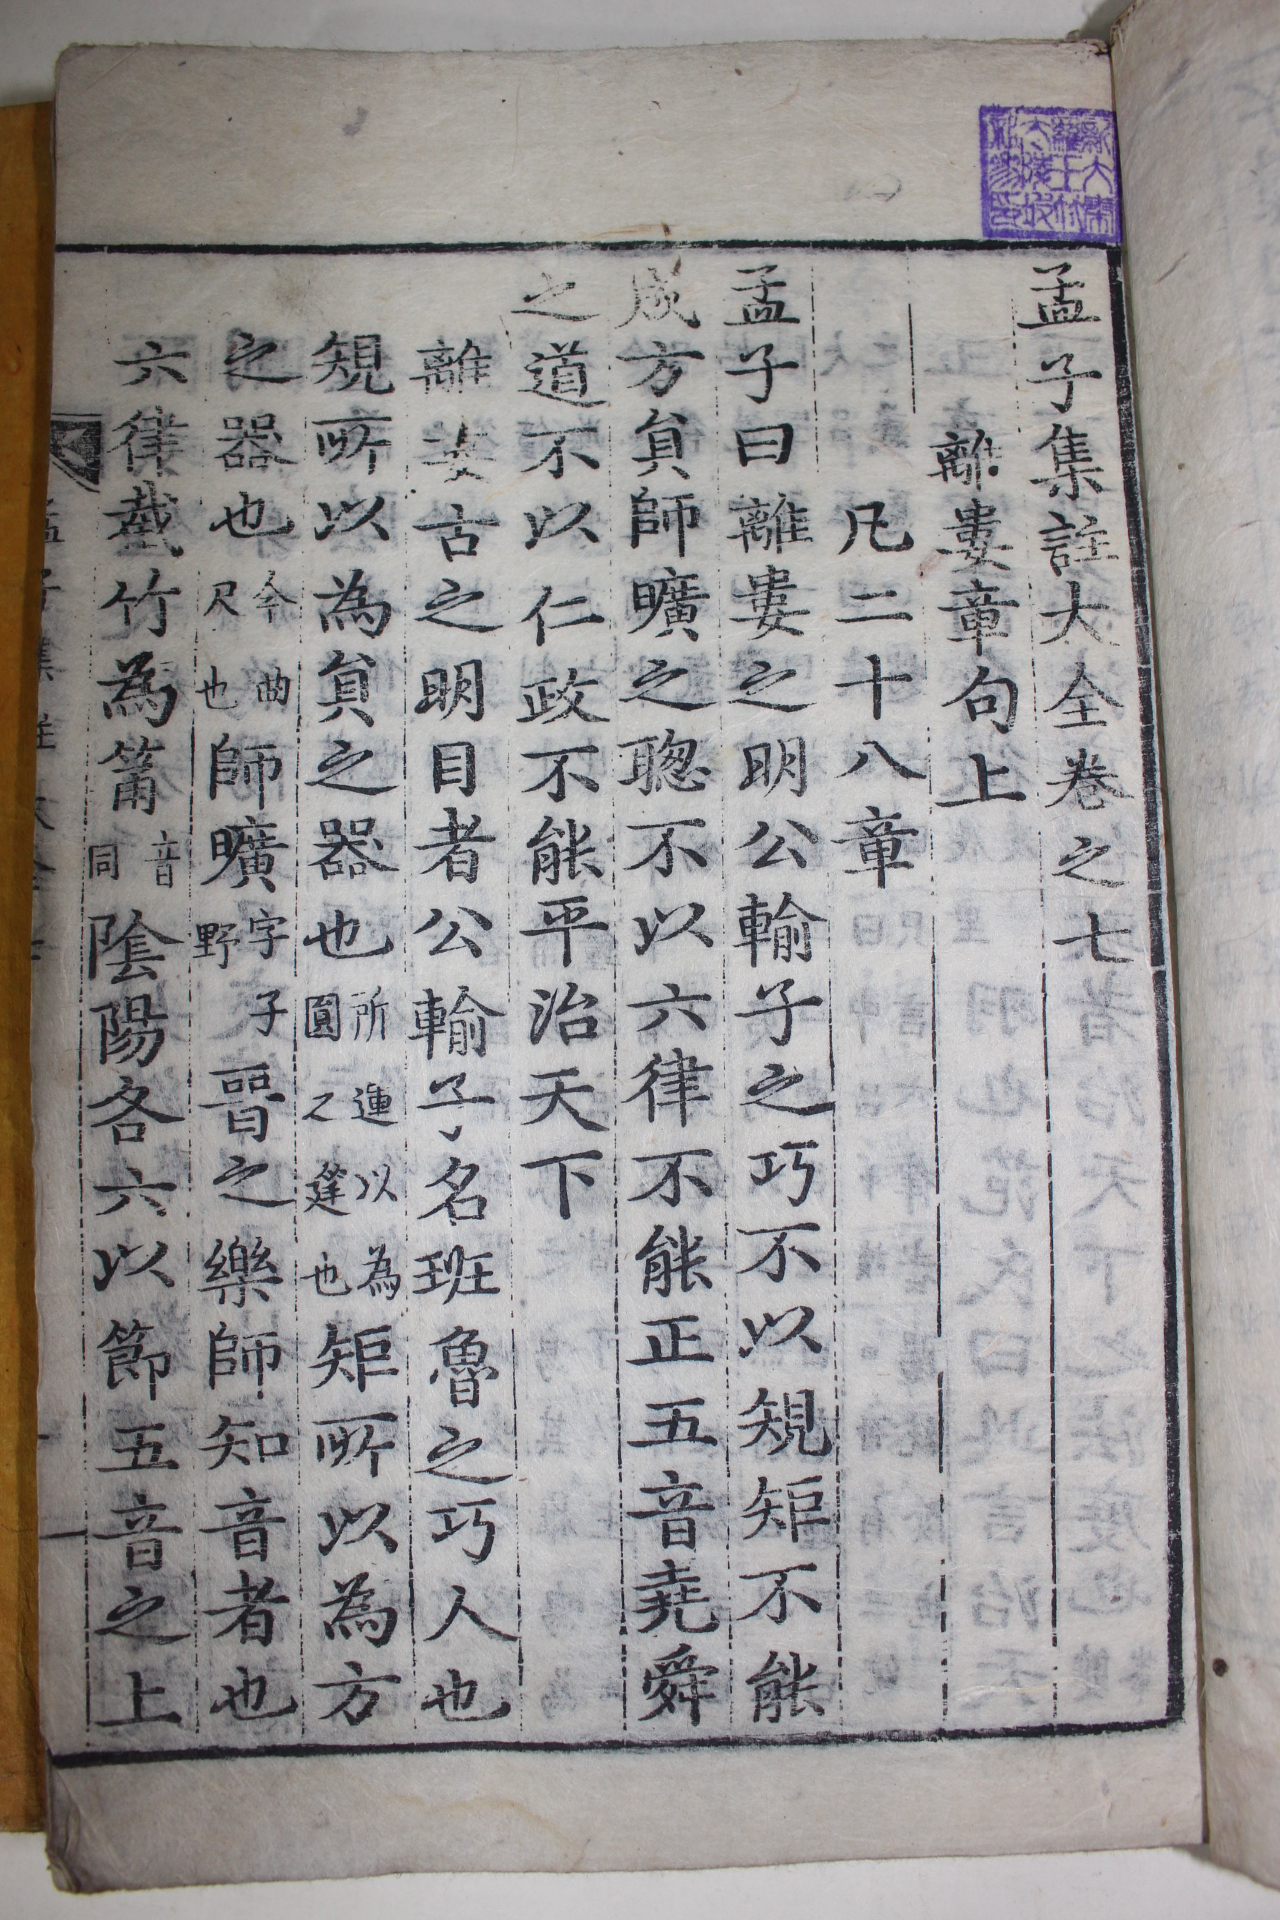 孟子集註大全卷之七
離婁章句上
凡二十八章
孟子曰離婁之明公輸子之巧不以規矩不能
成方負師曠之聰不以六律不能正五音堯舜
之道不以仁政不能平治天下
離婁古之明目者公輸子名班魯之巧人也
規所以為負之器也所運以為圓之篗也矩所以為方
之器也今曲尺也師曠字子野晉之樂師知音者也
六律截竹為筩音同陰陽各六以節五音之上